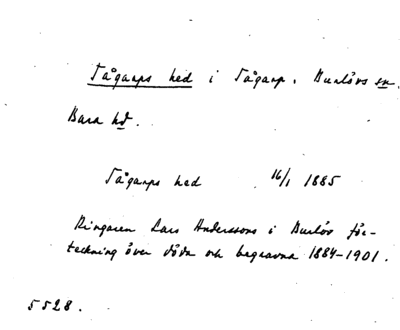 Tågarps hed i Tågarp, Burlövs sn.
Bara hd.
Tågarps hed 16/1 1885
Ringaren Lars Anderssons i Burlöv för-
teckning över döda och begravna 1884-1901.
5528.